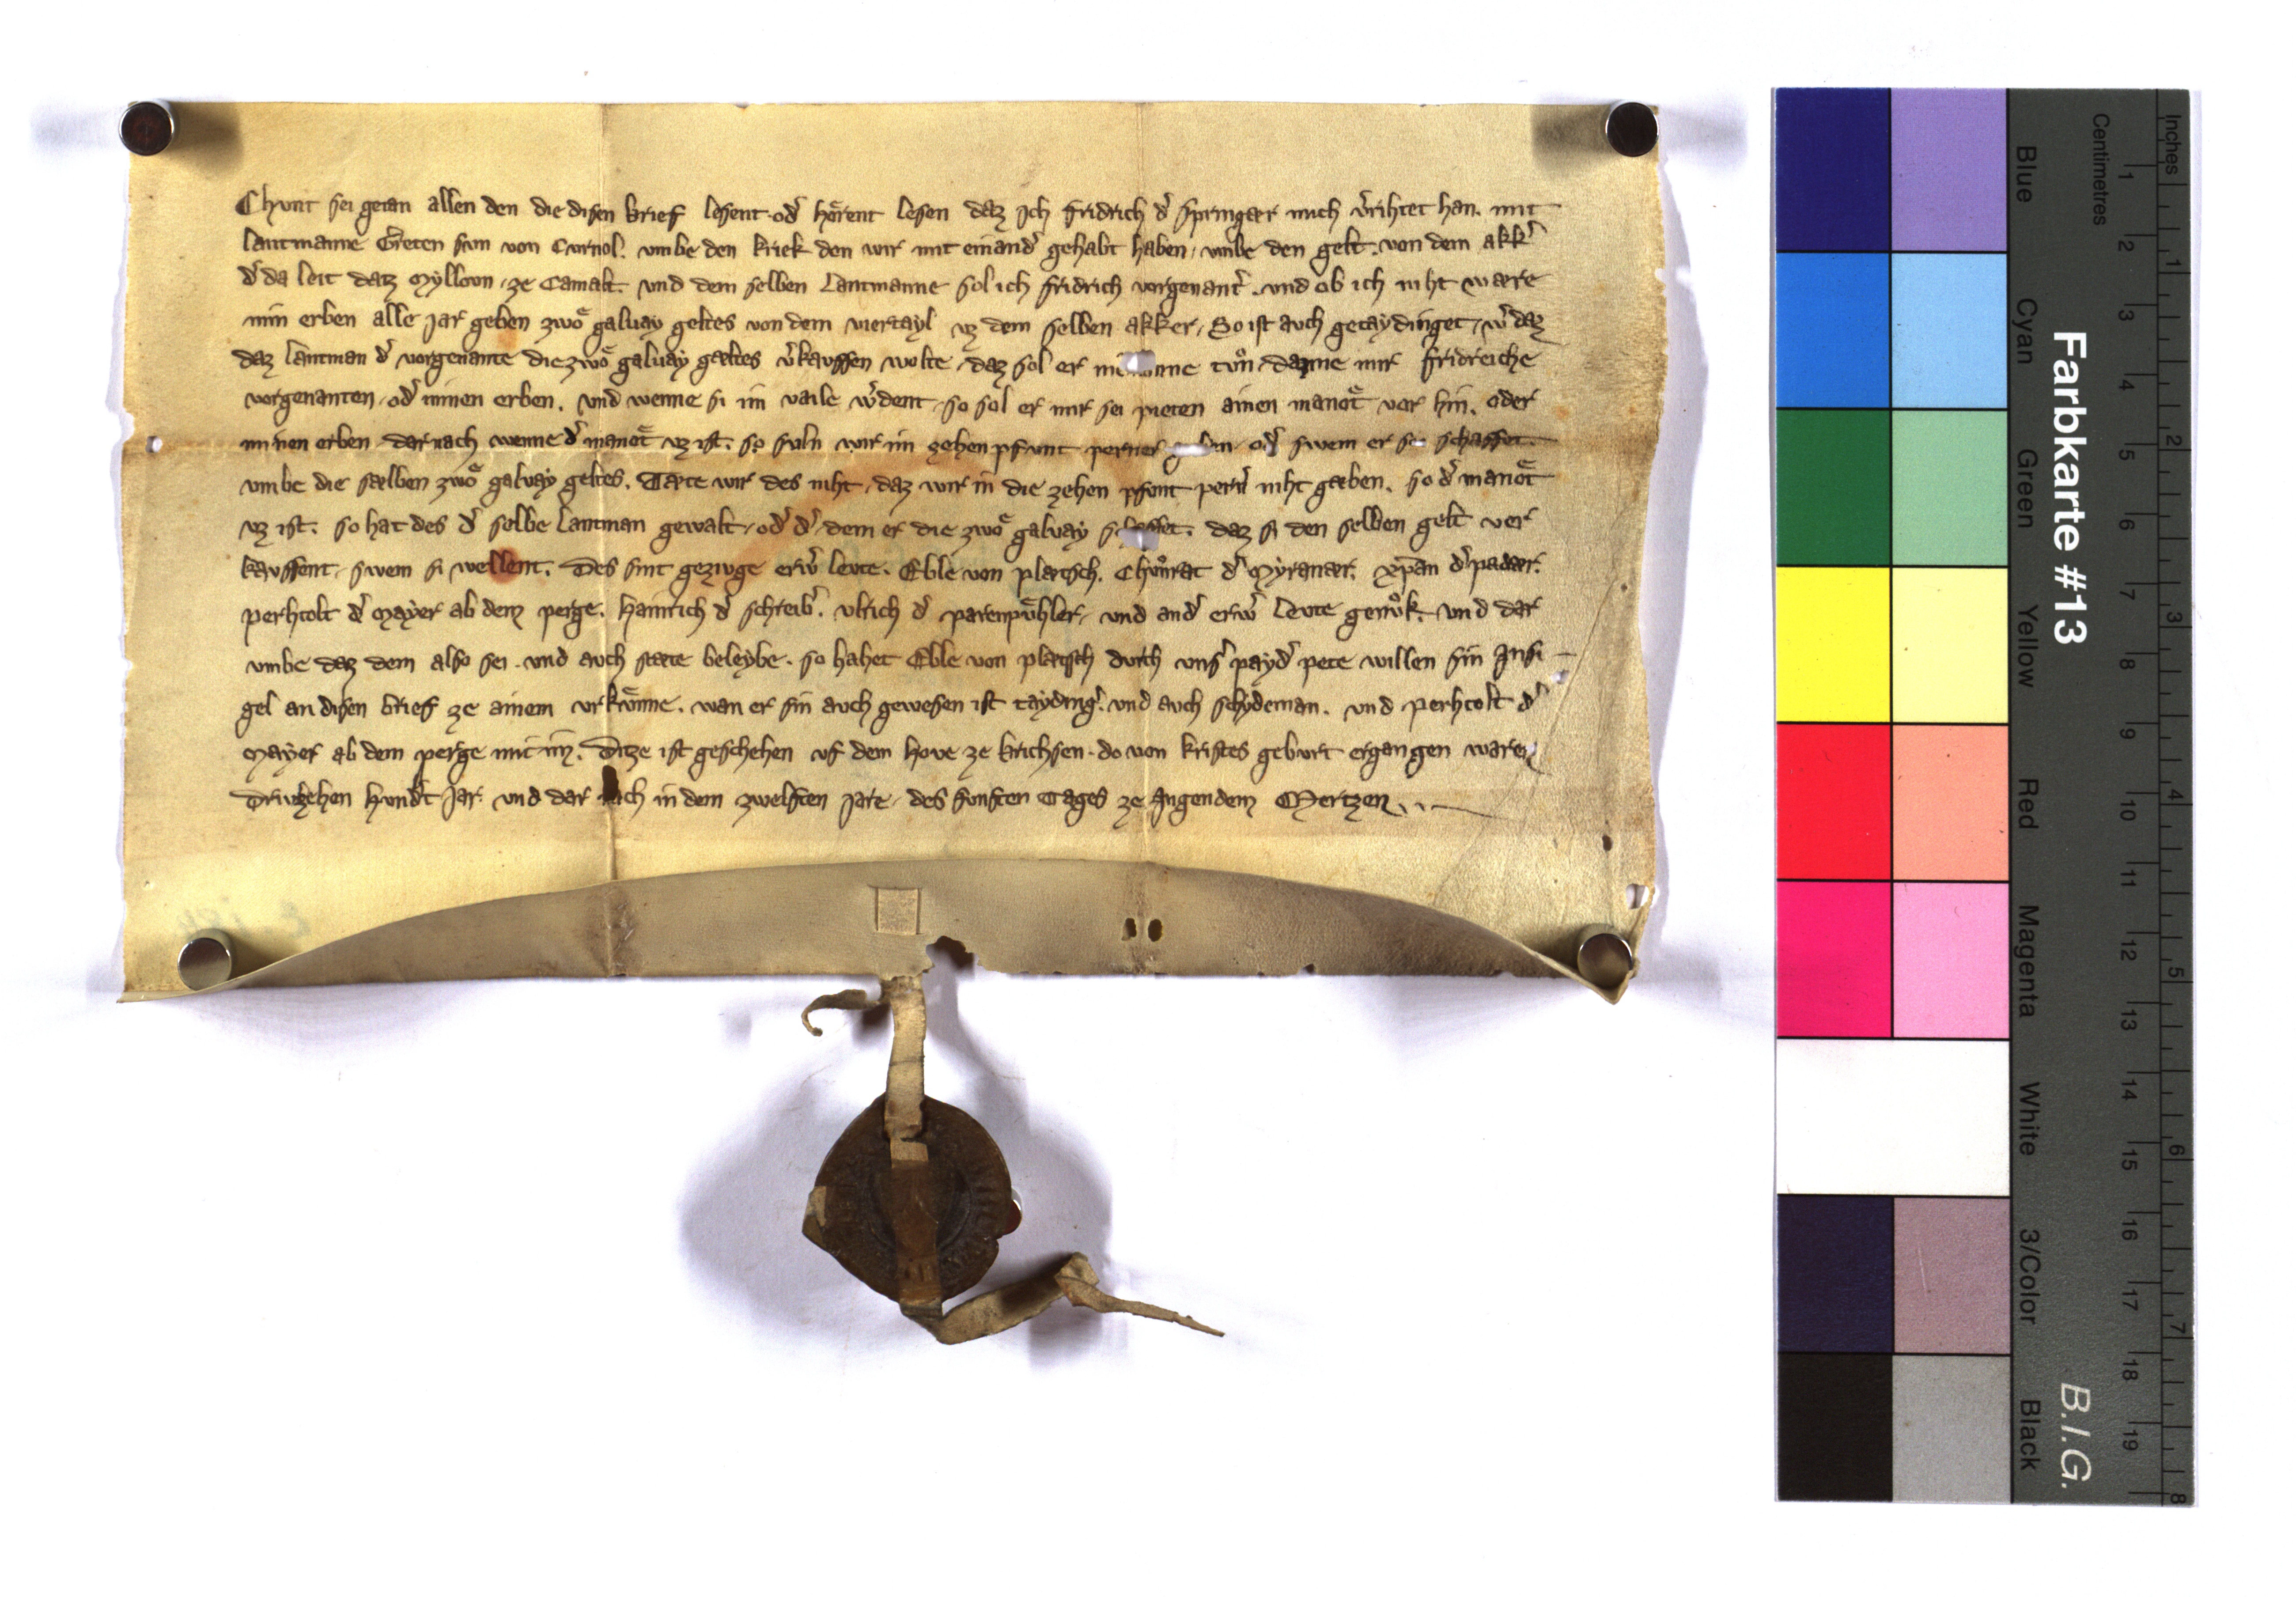 Chunt sei getan allen den die disen brief lesent. od̾ hoͤrent lesen daz Ich fridrich d̾ springær mich v̾rihtet han. mit
lantmanne Greten sun von Curnol. umbe den kriek den wir mit einand̾ gehabt haben, umbe den gelt. von dem akk̾
d̾ da leit datz Mylloun, ze Camalt. und dem selben Lantmanne sol ich fridrich vorgenant̾. und ob ich niht wære
min erben alle Jar geben zwoͤ galvay geltes von dem viertayl uz dem selben akker, So ist auch getaydinget, w̾ daz
daz lantman d̾ vorgenante die zwoͤ galvay gæltes v̾kauffen wolte, daz sol er tuͦn, danne mir fridreiche
vorgenanten, od̾ minen erben. und wenne si im vaile w̾dent, so sol er mir sei pieten ainen manoͤt vor hin. oder
minen erben dar nach wenne d̾ manoͤt uz ist. so suln wir im zehen pfunt perner od̾ swem er schaffet.
umbe die sælben zwoͤ galvay geltes. Tæte wir des niht, daz wir in die zehen pfunt pern̾ niht gæben. so d̾ manoͤt
uz ist. so hat des d̾ selbe lantman gewalt, od̾ d̾, dem er die zwoͤ galvay schaffet. daz si den selben gelt ver
kauffent, swem si wellent. Des sint geziuge erw̾ leute. Eble von plætsch. Chuͦnrat d̾ Myranær. xp̄an d̾ padær.
perhtolt d̾ Mayer ab dem perge. Hainrich d̾ schreib̾. ulrich d̾ parenpuͤhler, und and̾ erw̾ leute genuͦk. und dar
umbe daz dem also sei. und auch stæte beleybe. so hahet Eble von plætsch durch uns̾ payd̾ pete willen sin Insi
gel an disen brief ze ainem urkuͤnne. wan er sin auch gewesen ist tayding̾. und auch schydeman. und perhtolt d̾
Mayer ab dem perge mit im. Ditze ist geschehen uf dem hove ze brichsen. do von kristes geburt ergangen waren
Driuzehen hund̾t Jar. und dar nach in dem zwelften jare, des funften Tages ze Angendem Mertzen...
Farbkarte #13
B.I.G.
Centimetres
Inches
Blue
Cyan
Green
Yellow
Red
Magenta
White
3/Color
Black
1 2 3 4 5 6 7 8 9 10 11 12 13 14 15 16 17 18 19
1 2 3 4 5 6 7 8